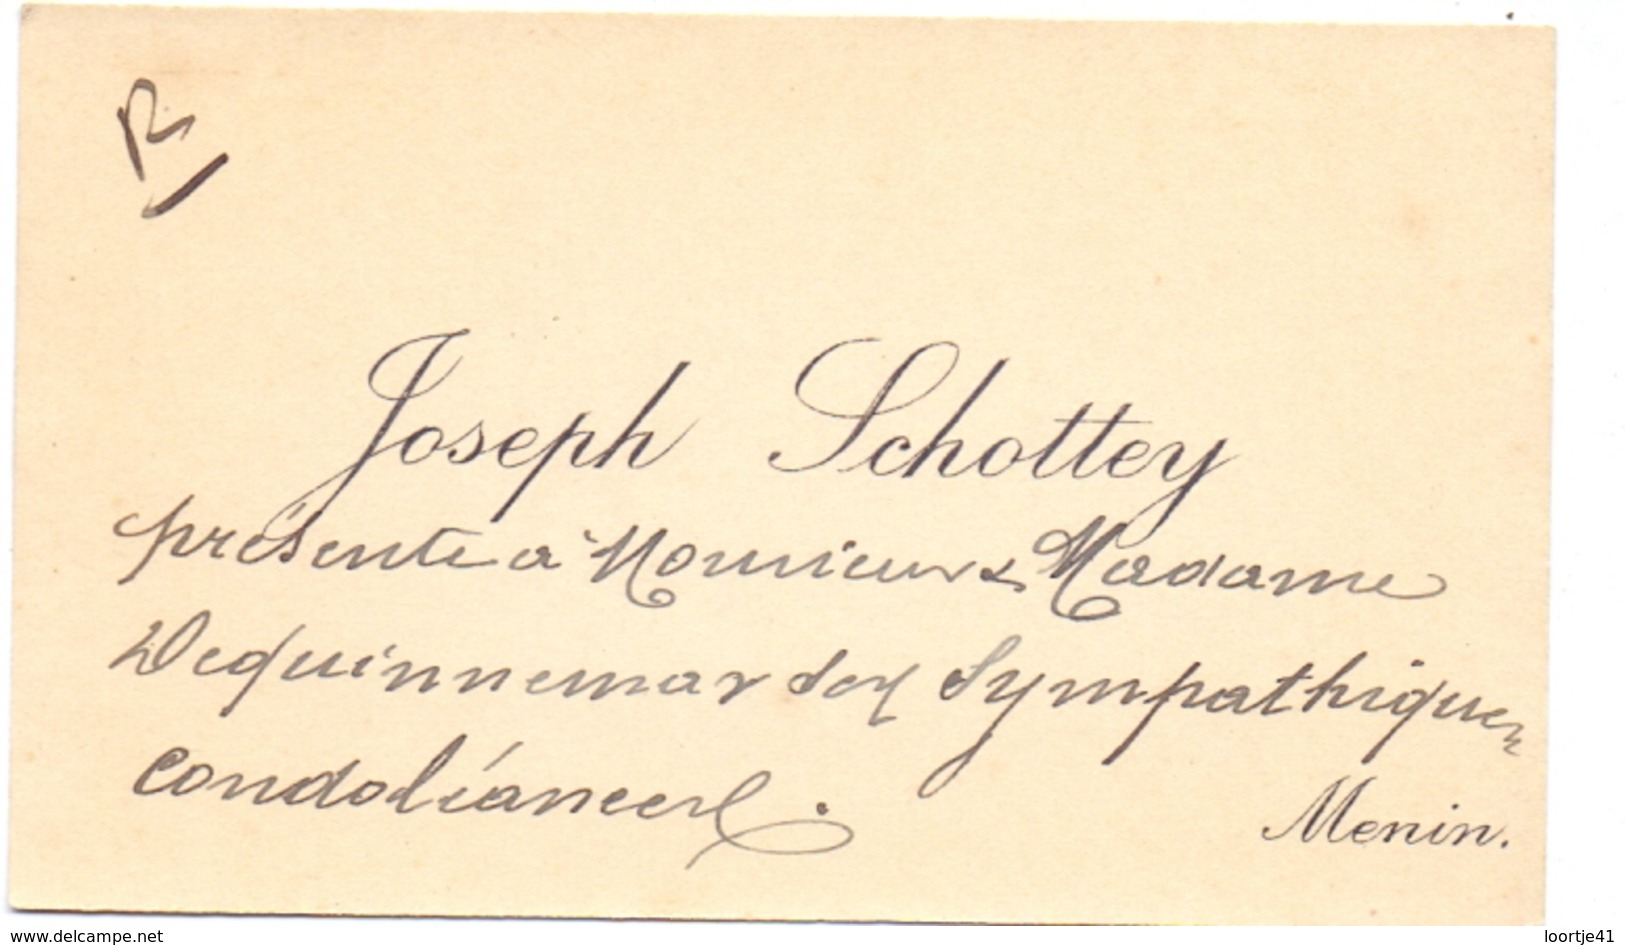 R
Joseph Schottey
présente à Monsieur & Madame
Dequinnemar ses sympathiques
condoléances.
Menin.
www.delcampe.net
loortje41